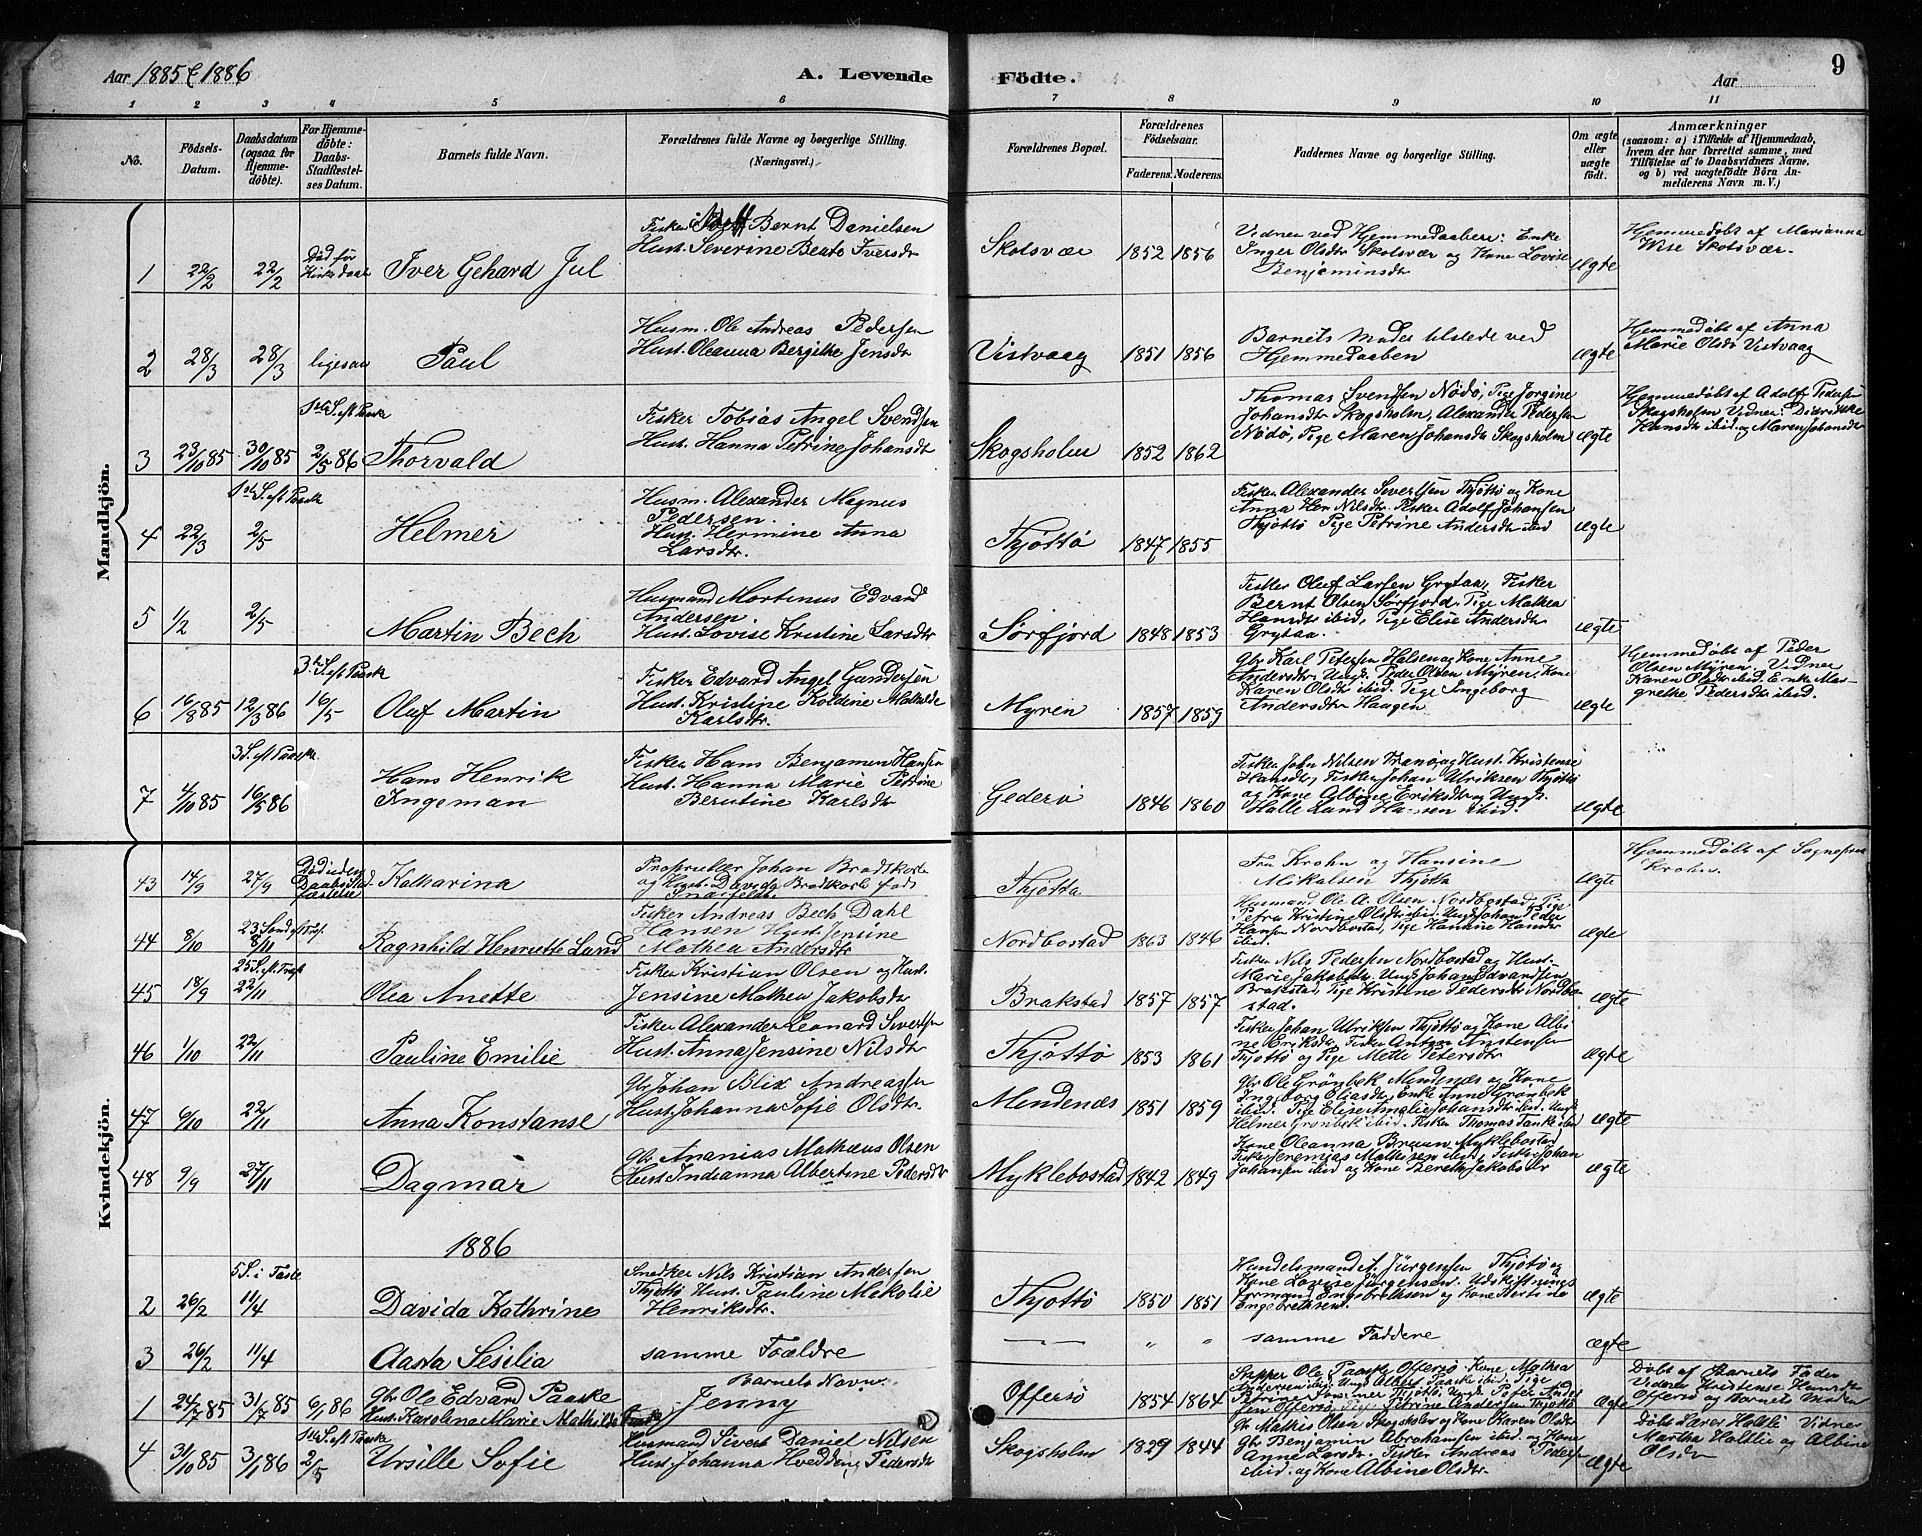 Aar 1885 & 1886
A. Levende Födte.
Aar
9
1 2 3 4 5 6 7 8 9 10 11
No.
Födsels-Datum.
Daabsdatum (ogsaa for Hjemmedøbte).
For Hjemmedøbte: Daabs-Stadfæstelses Datum.
Barnets fulde Navn.
Forældrenes fulde Navne og borgerlige Stilling. (Næringsvei.)
Forældrenes Bopæl.
Forældrenes Födselsaar.
Faderens. Moderens.
Faddernes Navne og borgerlige Stilling.
Om ægte eller uægte födt.
Anmærkninger
(saasom: a) i Tilfælde af Hjemmedaab, hvem der har forrettet samme, med Tilföielse af to Daabsvidners Navne, og b) ved uægtefödte Börn Anmelderens Navn m. V.)
Mandkjön.
1 22/2 22/2 Død før Kirkedaab Iver Gehard Jul
Fisker Bernt Danielsen
Hust. Severine Beate Iversdtr
Skotsvær 1852 1856
Vidner ved Hjemmedaaben: Enke
Inger Olsdtr Skotsvær og Kone Lovise
Benjaminsdtr
ægte
Hjemmedøbt af Marianna
Wise Skotsvær.
2 28/3 28/3 ligesaa Paul
Husm. Ole Andreas Pedersen
Hust. Oleanna Bergitke Jensdtr
Vistvaag 1851 1856
Barnets Moder tilstede ved
Hjemmedaaben
ægte
Hjemmedøbt af Anna
Marie Olsdtr Vistvaag
3 23/10 85 30/10 85 1ste S. eft Paaske 2/5 86 Thorvald
Fisker Tobias Angel Svendsen
Hust. Hanna Petrine Johansdtr
Skogsholm 1852 1862
Thomas Svendsen Nödö, Pige Jorgine
Johansdtr Skogsholm, Alexander Pedersen
Nödö, Pige Maren Johansdtr Skogsholm
ægte
Hjemmedøbt af Adolf Pedersen
Skogsholm Vidner: Didrikke
Hansdtr ibid. og Maren Johansdtr
4 22/3 1ste S. eft Paaske 2/5 Helmer
Husm. Alexander Magnus
Pedersen.
Hust. Hermine Anna
Larsdtr.
Thjöttö 1847 1855
Fisker Alexander Sivertsen Thjöttö og Kone
Anna Nilsdtr. Fisker Adolf Johansen
Thjöttö Pige Petrine Andersdtr ibid
ægte
5 1/2 2/5 Martin Bech
Husmand Martinus Edvard
Andersen.
Hust. Lovise Kristine Larsdtr
Sörfjord 1848 1853
Fisker Oluf Larsen Grytaa, Fisker
Bernt Olsen Sörfjord, Pige Mathea
Hansdtr ibid, Pige Elise Andersdtr
Grytaa.
ægte
6 16/8 85 12/3 86 3die S. eft Paaske 16/5 Oluf Martin
Fisker Edvard Angel Gundersen
Hust. Kristine Koldine Mathilde
Karlsdtr.
Myren 1857 1859
Gbr Karl Petersen Halsen og Kone Anne
Andersdtr Ungk. Peder Olsen Myren, Kone
Karen Olsdtr ibid. Pige Ingeborg
Andersdtr Haagen
ægte
Hjemmedøbt af Peder
Olsen Myren. Vidner
Karen Olsdtr ibid. Enke Margrethe
Pedersdtr ibid.
7 4/10 85 3 S. eft Paaske 16/5 86 Hans Henrik
Ingeman
Fisker Hans Benjamin Hansen
Hust. Hanna Marie Petrine
Berntine Karlsdtr
Gederö 1846 1860
Fisker John Nilsen Tranö, og Hust. Kristense
Hansdtr, Fisker Johan Ulriksen Thjöttö
og Kone Albine Eriksdtr og Ungk.
Halle Lund Hansen ibid.
ægte
Kvindekjön.
43 14/9 27/9 Död uden Daabsstadfæstelse Katharina
Proprietær Johan Brodtkorb
og Hust. Davida Brodtkorb født
Thjøtta
Fru Krohn og Hansine
Mikalsen Thjøtta
ægte
Hjemmedøbt af Sognepræst
Krohn.
44 8/10 23 Sönd. ef Tref. 8/11 Ragnhild Henriette Lund
Fisker Andreas Bech Dahl
Hansen Hust. Jensine
Mathea Andersdtr
Nordbostad 1863 1846
Husmand Ole A. Olsen Nordbostad, Pige
Petra Kristine Olsdtr ibid. Ungk Johan Peder
Hansen Nordbostad, Pige Hansine Hansdtr
ibid.
ægte
45 18/9 25 S. eft. Tref 22/11 Olea Anette
Fisker Kristian Olsen og Hust.
Jensine Mathea Jakobsdtr
Brakstad 1857 1857
Fisker Nils Pedersen Nordbostad og Hust.
Marie Jakobsdtr, Ungk Johan Edvardsen
Brakstad, Pige Kristine Pedersdtr Nordbostad.
ægte
46 1/10 22/11 Pauline Emilie
Fisker Alexander Leonard Sivertsen
Hust. Anna Jensine Nilsdtr
Thjöttö 1853 1861
Fisker Johan Ulriksen Thjöttö og Kone Albine
Eriksdtr, Fisker Anton Anstensen
Thjöttö og Pige Mette Petersdtr
ægte
47 6/10 22/11 Anna Konstanse
Gbr Johan Blix Andreassen
Hust. Johanna Sofie Olsdtr.
Mindenæs 1851 1859
Gbr Ole Grönbek Mindenæs og Kone
Ingeborg Eliasdtr, Enke Anne Grönbek
ibid. Pige Elise Amalie Johansdtr ibid. Ungk
Helmer Grönbek ibid. Fisker Thomas Tanke ibid
ægte
48 9/9 27/11 Dagmar
Gbr Ananias Mathæus Olsen
Hust. Indianna Albertine Pedersdtr
Myklebostad 1842 1849
Kone Oleanna Bruun Myklebostad
Fisker Jeremias Mathisen ibid, Fisker Johan
Johansen ibid og Kone Bereth Jakobsdtr
ægte
1886
2 26/2 5 S. i Faste 11/4 Davida Kathrine
Snedker Nils Kristian Andersen
Thjöttö Hust. Pauline Mekolie
Henriksdtr.
Thjöttö 1850 1851
Handelsmand J. Jürgensen Thjöttö og
Kone Lovise Jürgensen. Udskiftningsformand
Engebrethsen og Kone
Engebrethsen.
ægte
3 26/2 11/4 Aasta Sesilia
samme Forældre
— — " "
samme Faddere
ægte
1 24/7 85 31/7 85 6/1 86 Gbr Ole Edvard Paaske
Hust. Karolina Marie Mathilde
Barnets Navn:
Jenny
Offersö 1854 1864
Skipper Ole Paaske Offersö. Kone Mathea
Andersen ibid. Ungk Albert Paaske ibid. Pige
Offersö, Pige Petrine Andersen Thjöttö
ægte
Döbt af Barnets Fader
Vidner Kristense Hansdtr
Offersö og Barnets Moder
4 31/10 85 3/1 86 1ste S. eft Paaske 2/5 Ursille Sofie
Husmand Sivert Daniel Nilsen
Hust. Johanna Hvedding Pedersdtr
Skogsholm 1829 1844
Gr. Mathis Olsen Skogsholm og Kone Karen Olsdtr
Gbr Benjamin Abrahamsen ibid. og Kone
Anne Larsdtr. Fisker Andreas Pedersen
ibid. og Kone Albine Olsdtr.
ægte
Döbt Lærer Haltlie Vidner
Martha Haltlie og Albine
Olsdtr